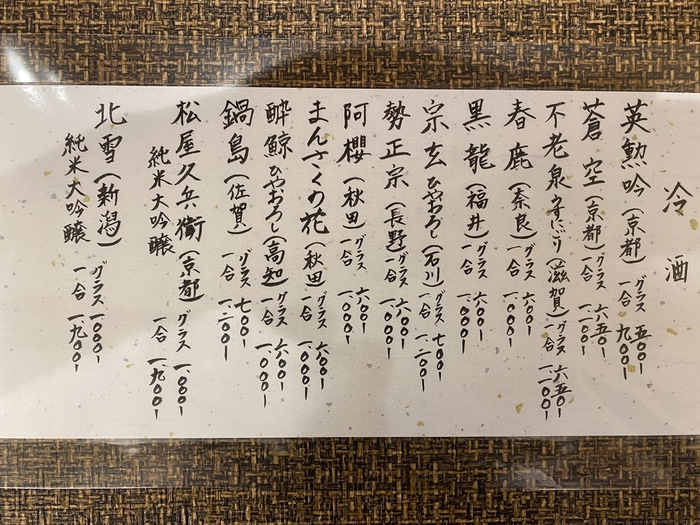 冷酒
英勲吟(京都)グラス 五〇〇ー
一合 九〇〇ー
蒼空(京都)グラス 六五〇ー
一合 一、一〇〇ー
不老泉うすにごり(滋賀)グラス 六五〇ー
一合 一、一〇〇ー
春鹿(奈良)グラス 六〇〇ー
一合 一、〇〇〇ー
黒龍(福井)グラス 六〇〇ー
一合 一、〇〇〇ー
宗玄ひやおろし(石川)グラス 七〇〇ー
一合 一、二〇〇ー
勢正宗(長野)グラス 六〇〇ー
一合 一、〇〇〇ー
阿櫻(秋田)グラス 六〇〇ー
一合 一、〇〇〇ー
まんさくの花(秋田)グラス 六〇〇ー
一合 一、〇〇〇ー
酔鯨ひやおろし(高知)グラス 六〇〇ー
一合 一、〇〇〇ー
鍋島(佐賀)グラス 七〇〇ー
一合 一、二〇〇ー
松屋久兵衛(京都)グラス 一、〇〇〇ー
純米大吟醸 一合 一、九〇〇ー
北雪(新潟)グラス 一、〇〇〇ー
純米大吟醸 一合 一、九〇〇ー